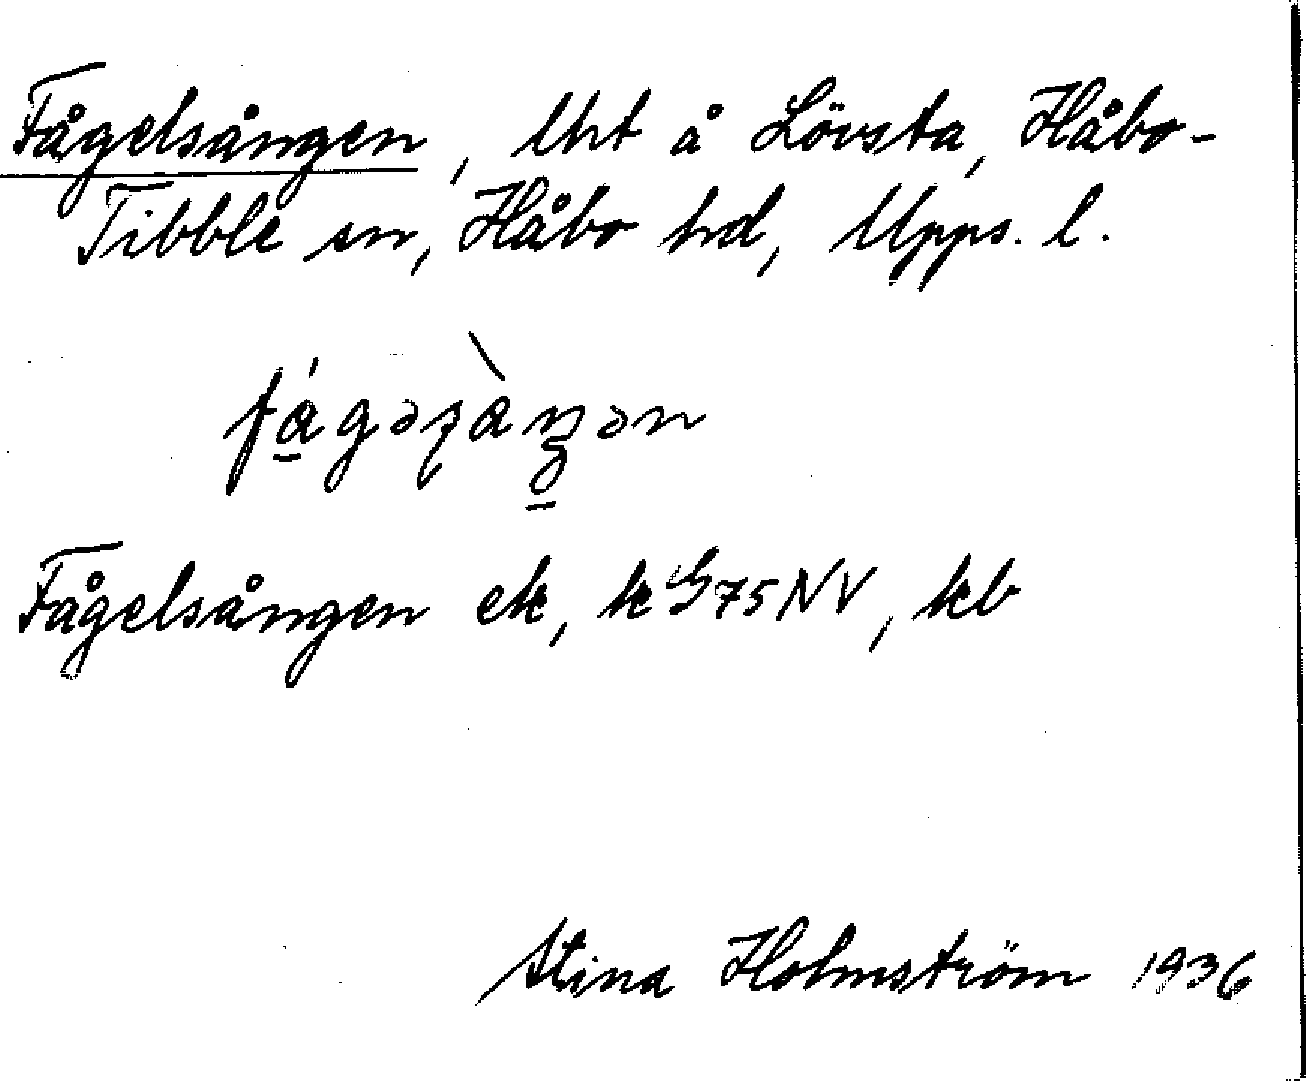 Fågelsången, lht å Lövsta, Håbo-
Tibble sn, Håbo hd, Upps. l.
Fågelsången ek, k G75NV, kb
Stina Holmström 1936